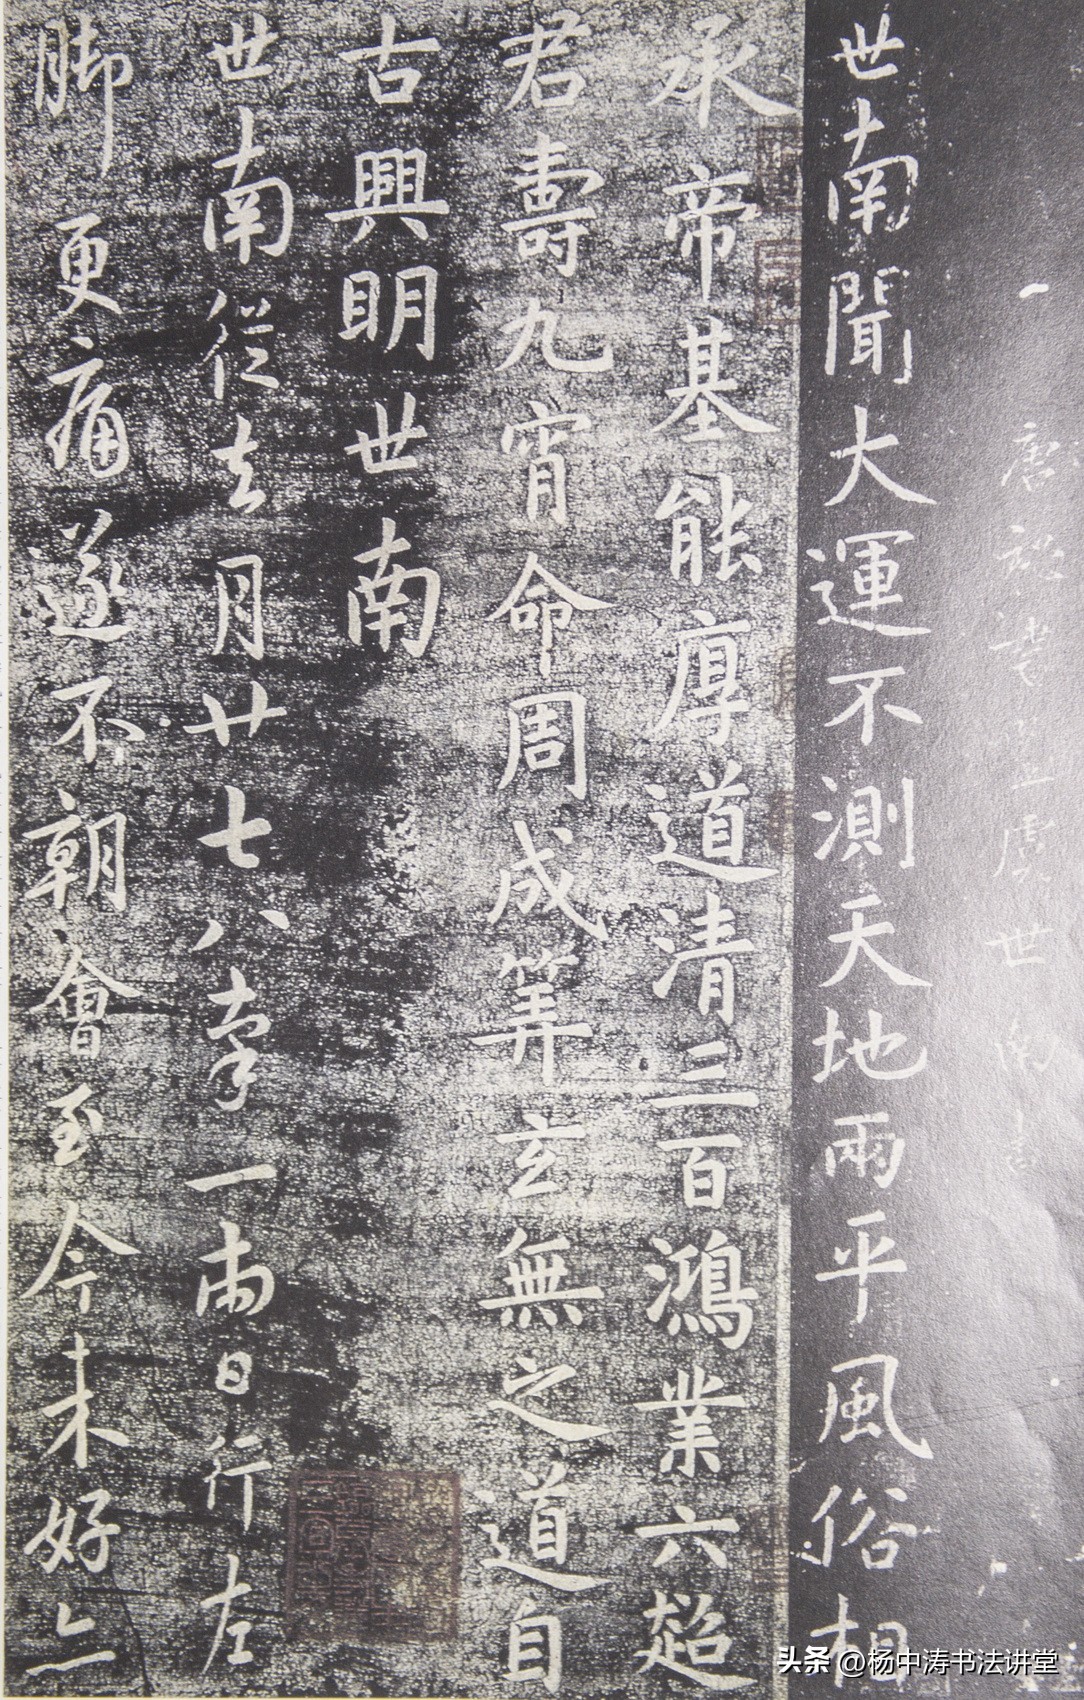 唐秘書監虞世南書
世南聞大運不測天地兩平風俗相
承帝基能厚道清三百鴻業六超
君壽九宵命周成筭玄無之道自
古興明世南
世南從去月廿七八率一兩日行左
脚更痛遂不朝會至今未好亦
头条 @杨中涛书法讲堂